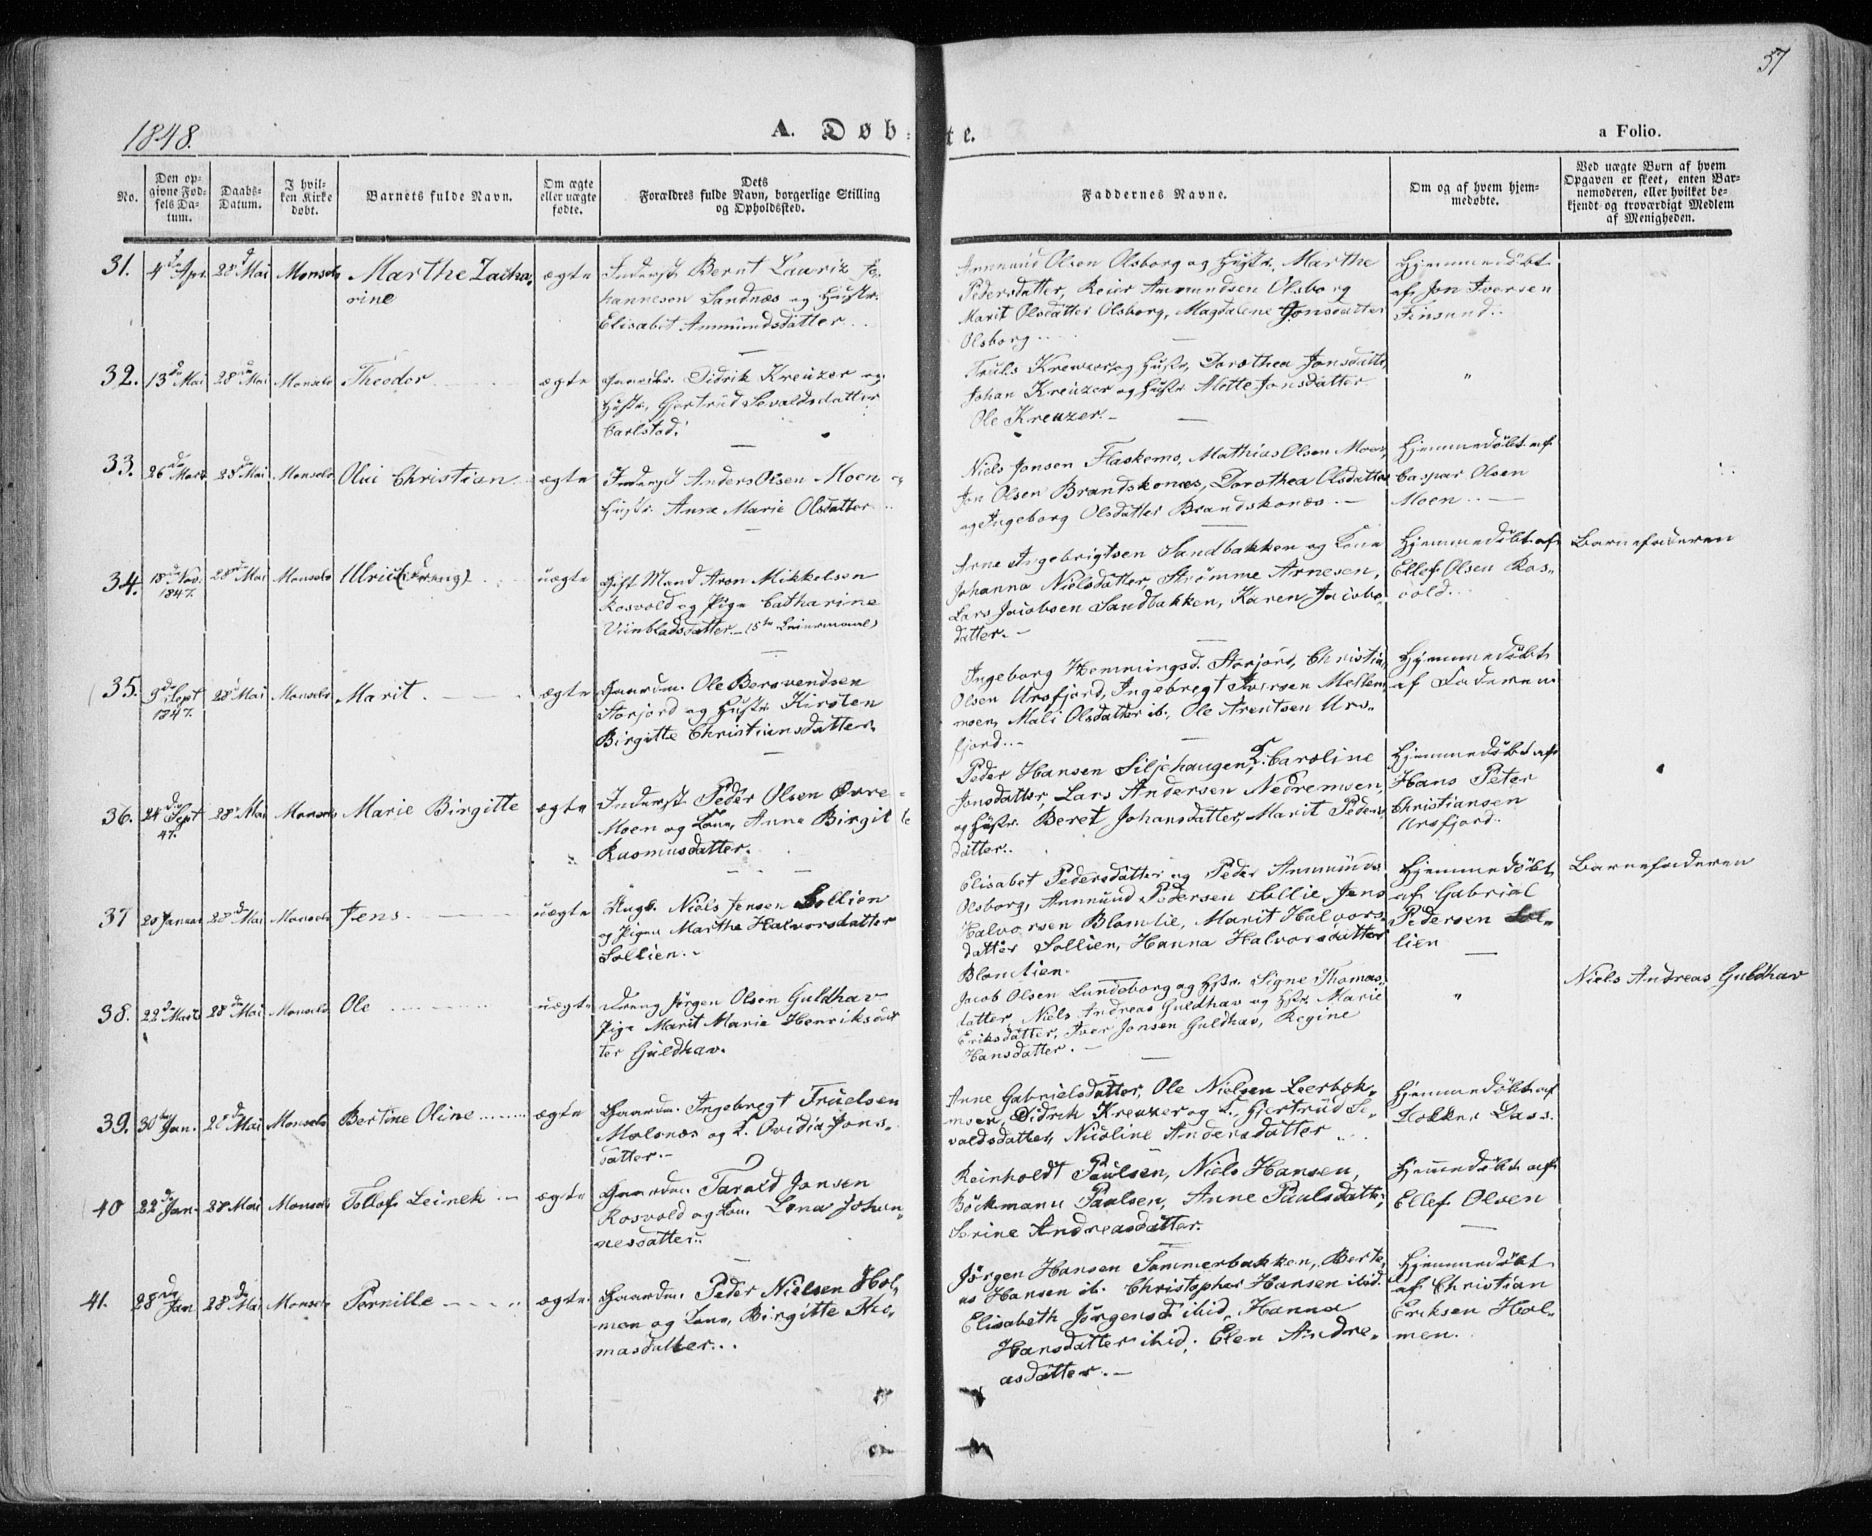 37
1848.
A. Døb-te.
a Folio.
No.
Den op-
givne Fød-
sels Da-
tum.
Daabs-
Datum.
I hvil-
ken Kirke
døbt.
Barnets fulde Navn.
Om ægte
eller uægte
fødte.
Dets
Forældres fulde Navn, borgerlige Stilling
og Opholdssted.
Faddernes Navne.
Om og af hvem hjem-
medøbte.
Ved uægte Børn af hvem
Opgaven er skeet, enten Bar-
nemoderen, eller hvilket be-
kjendt og troværdigt Medlem
af Menigheden.
31. 4de Apr. 28d Mai Monselv Marthe Zacha-
rine
ægte
Inderst Bernt Lauriz Jo-
hannesen Sandnæs og Hustr.
Elisabet Ammundsdatter
Ammund Olsen Olsborg og Hustr. Marthe
Pedersdatter, Reier Ammundsen Olsborg
Marit Olsdatter Olsborg, Magdalene Jonsdatter
Olsborg
Hjemmedøbt
af Jon Iversen
Finsund.
32. 13de Mai 28de Mai Monselv Theodor ægte
Didrik Kreuzer og
Hustr. Gjertrud Sivaldsdatter
Carlstad.
Truls Kreuzer og Hustr. Dorothea Jonsdatter
Johan Kreuzer og Hustr. Alette Jonsdatter
Ole Kreuzer.
"
33. 26de Marts 28d Mai Monselv Olai Christian ægte
Inderst Anders Olsen Moen og
Hustr. Anne Marie Olsdatter
Niels Jonsen Flaskemo, Mathias Olsen Moen,
Jon Olsen Brandskonæs, Dorothea Olsdatter
og Ingeborg Olsdatter Brandskonæs.
Hjemmedøbt af
Caspar Olsen
Moen
34. 18d Nov.
1847.
28de Mai Monselv Ulrich (Dreng) uægte
Gift Mand Aron Mikkelsen
Rosvold og Pige Catharine
Viinbladsdatter (5te Leiermaal)
Arne Ingebrigtsen Sandbakken og Kone
Johanna Nielsdatter, Strømme Arnesen,
Lars Jacobsen Sandbakken, Karen Jacobs-
datter.
Hjemmedøbt af
Ellef Olsen Ros-
vold.
Barnefaderen
35. 9de Sept
1847.
28d Mai Monselv Marit ægte
Gaardm. Ole Bersvendsen
Storjord og Hustr. Kirsten
Birgitte Christiansdatter.
Ingeborg Hemmingsd. Storjord, Christian
Olsen Ursfjord, Ingebregt Iversen Mellem-
moen, Mali Olsdatter ib., Ole Arentsen Urs-
fjord.
Hjemmedøbt
af Faderen
36. 24de Sept
47.
28d Mai Monselv Marie Birgitte ægte
Inderst Peder Olsen Øvre-
Moen og Kone, Anne Birgitte
Rasmusdatter.
Peder Hansen Siljehaugen, K. Caroline
Jonsdatter, Lars Andersen Nedremoen,
og Hustr. Beret Johansdatter, Marit Peders-
datter.
Hjemmedøbt af
Hans Peter
Christiansen
Ursfjord.
37 20 Januar 28d Mai Monselv Jens uægte
Ungk. Niels Jensen Sollien
og Pigen Marthe Halvorsdatter
Sollien.
Elisabet Pedersdatter og Peder Ammunds.
Olsborg, Ammund Pedersen Sollie, Jens
Halvorsen Blomlie, Marit Halvors-
datter Sollien, Hanna Halvorsdatter
Blomlien.
Hjemmedøbt
af Gabriel
Pedersen Sol-
lien
Barnefaderen
38. 22de Marts 28d Mai Monselv Ole uægte
Dreng Jørgen Olsen Guldhav
Pige Marit Marie Henriksdat
ter Guldhav.
Jacob Olsen Lundeborg og Hstr. Signe Thomas-
datter, Niels Andreas Guldhav og Hstr. Marie
Eriksdatter, Iver Jonsen Guldhav, Regine
Hansdatter.
"
Niels Andreas Guldhav
39. 30te Jan. 28d Mai Monselv Bertine Oline ægte
Gaardm. Ingebregt Truelsen
Molsnæs og K. Ovidia Jons-
datter.
Anne Gabrielsdatter, Ole Nielsen Leerbek-
moen, Didrik Kreuzer og K. Gjertrud Si-
valdsdatter, Nicoline Andersdatter
Hjemmedøbt af
Klokker Lass.
40 22d Jan. 28 Mai Monselv Tollef Leinek ægte
Gaardm. Tarald Jonsen
Rosvold og Kone Lena Johan-
nesdatter.
Reinholdt Paulsen, Niels Hansen,
Böckmann Paulsen, Anne Paulsdatter,
Serine Andreasdatter.
Hjemmedøbt af
Ellef Olsen
41. 28de Jan 28d Mai Monselv Pernille ægte
Gaardm. Peder Nielsen Hol-
men og Kone, Birgitte Tho-
masdatter.
Jørgen Hansen Sommerbakken, Berte-
us Hansen ib. Christopher Hansen ibid.
Elisabeth Jørgensd. ibid, Hanna
Hansdatter ibid, Elen Andre-
asdatter.
Hjemmedøbt
af Christian
Eriksen Hol-
men.